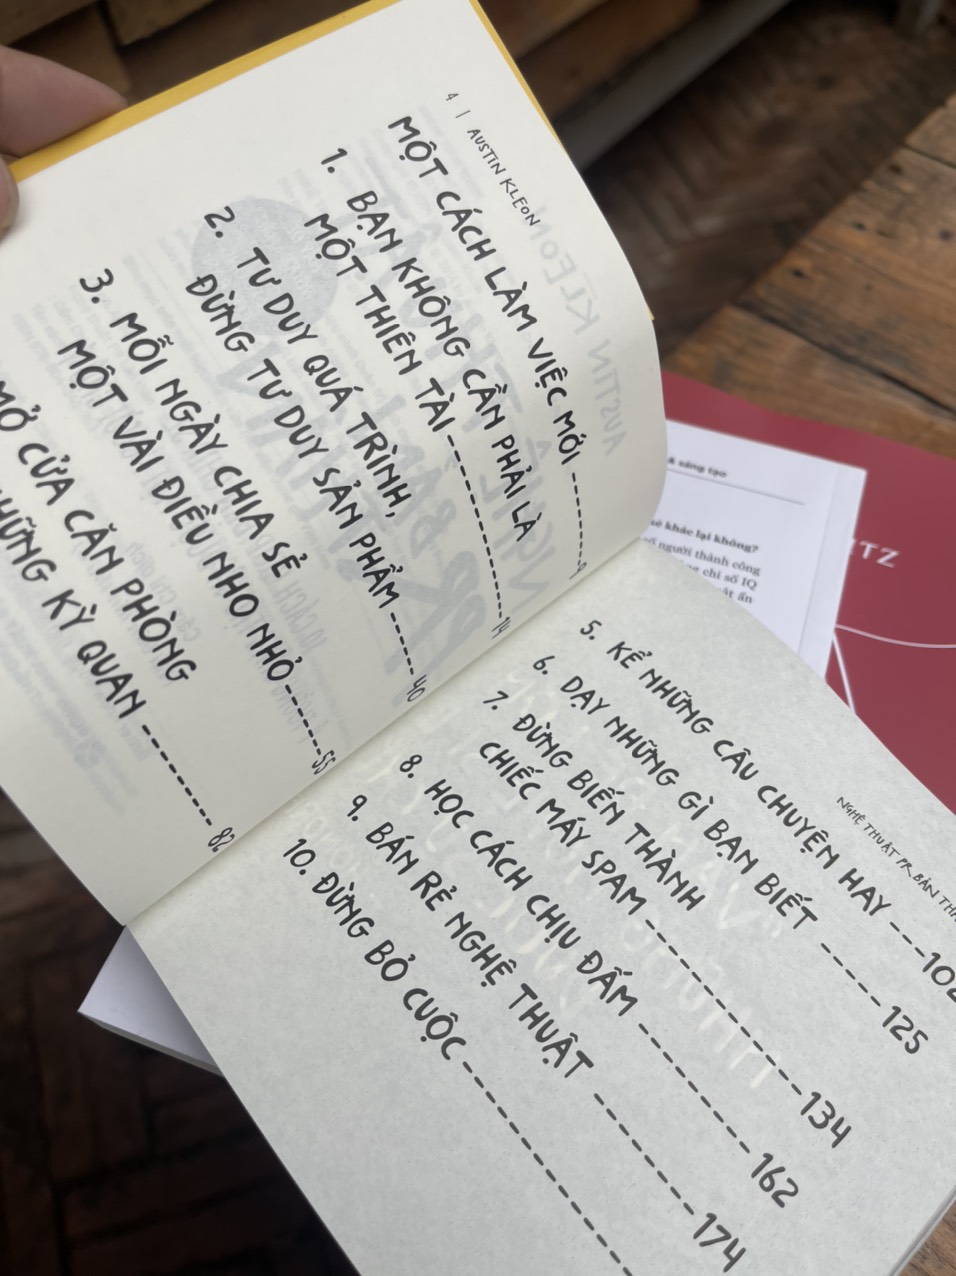 4 | AUSTIN KLEON
MỘT CÁCH LÀM VIỆC MỚI ------- 9
1. BẠN KHÔNG CẦN PHẢI LÀ
MỘT THIÊN TÀI --------------- 14
2. TƯ DUY QUÁ TRÌNH,
ĐỪNG TƯ DUY SẢN PHẨM ------ 40
3. MỖI NGÀY CHIA SẺ
MỘT VÀI ĐIỀU NHO NHỎ ------ 55
MỞ CỬA CĂN PHÒNG
NHỮNG KỲ QUAN --------- 82
NGHỆ THUẬT PR BẢN
5. KỂ NHỮNG CÂU CHUYỆN HAY ---102
6. DẠY NHỮNG GÌ BẠN BIẾT ------ 125
7. ĐỪNG BIẾN THÀNH
CHIẾC MÁY SPAM -------------- 134
8. HỌC CÁCH CHỊU ĐẤM ---------- 162
9. BÁN RẺ NGHỆ THUẬT --------- 174
10. ĐỪNG BỎ CUỘC ---------------
& sáng tạo
khác lại không?
người thành công
chỉ số IQ
ẩn
TZ